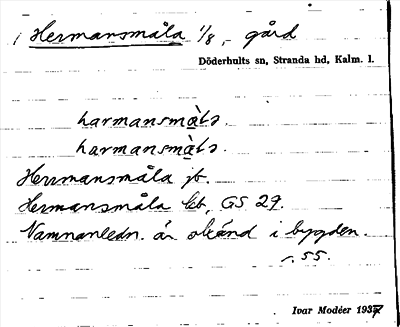 i Hermansmåla 1/8, - gård
Döderhults sn, Stranda hd, Kalm. l.
harmansmà̱lɔ.
harmansmà̱lɔ.
Hermansmåla jb.
Hermansmåla kb, GS 29.
Namnanledn. är okänd i bygden.
s. 55.
Ivar Modéer 1937